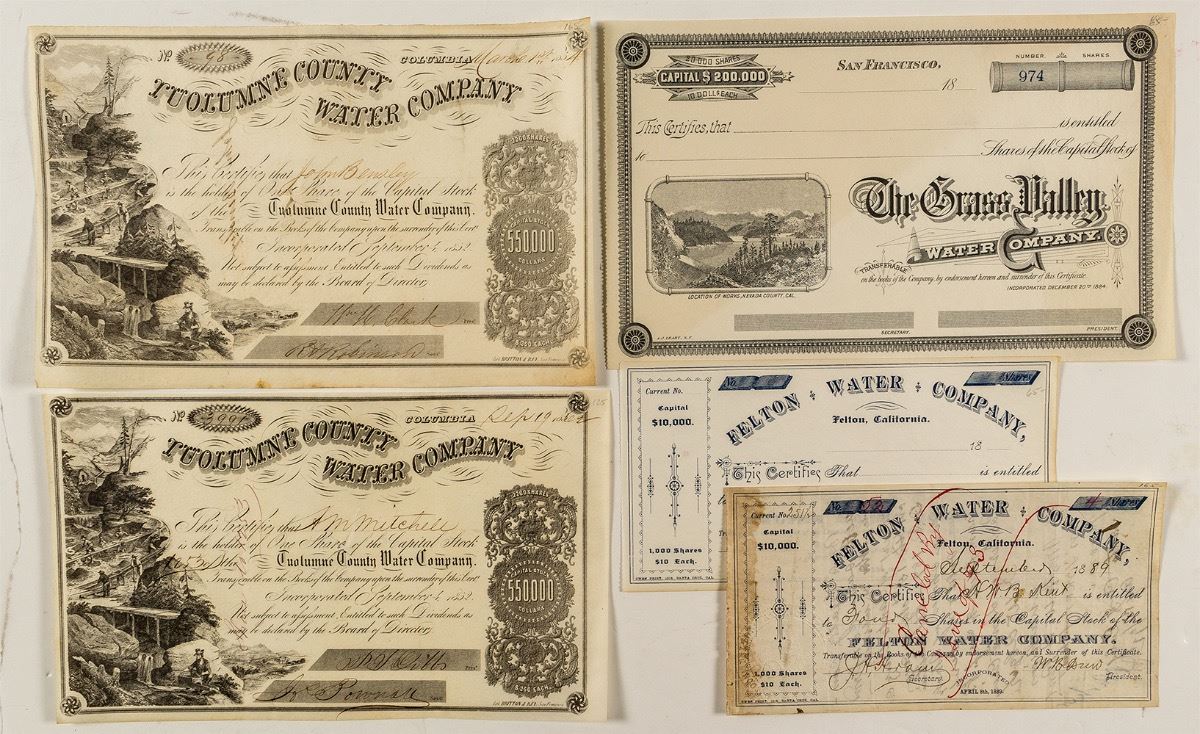 No 98
COLUMBIA March 1st
TUOLUMNE COUNTY
WATER COMPANY
This Certifies that John Bensley
is the holder of One Share of the Capital Stock
of the Tuolumne County Water Company.
Transferable on the Books of the Company upon the surrender of this Cert.
Incorporated September 4, 1852.
Not subject to assessment Entitled to such Dividends as
may be declared by the Board of Directors
CAPITAL STOCK
550000
DOLLARS
Wm H. Clark
Lith. BRITTON & REY. San Francisco
165
20,000 SHARES
CAPITAL $200.000
10 DOLLS EACH
SAN FRANCISCO,
18
NUMBER SHARES
974
This Certifies, that is entitled
to Shares of the Capital Stock of
The Grass Valley
WATER COMPANY.
TRANSFERABLE
on the books of the Company, by endorsement hereon and surrender of this Certificate.
INCORPORATED DECEMBER 20TH 1884.
LOCATION OF WORKS, NEVADA COUNTY, CAL.
SECRETARY.
PRESIDENT.
65-
No 399
COLUMBIA Sep 19
TUOLUMNE COUNTY
WATER COMPANY
This Certifies that A M Mitchell
is the holder of One Share of the Capital Stock
of the Tuolumne County Water Company.
Transferable on the Books of the Company upon the surrender of this Cert.
Incorporated September 4, 1852.
Not subject to assessment Entitled to such Dividends as
may be declared by the Board of Directors
CAPITAL STOCK
550000
DOLLARS
Lith. BRITTON & REY. San Francisco
125
Current No.
Capital
$10,000.
1,000 Shares
$10 Each.
No. Shares
FELTON WATER COMPANY,
Felton, California.
18
This Certifies That is entitled
to
65
Current No.
Capital
$10,000.
1,000 Shares
$10 Each.
No. Shares 4
FELTON WATER COMPANY,
Felton, California.
September 1889
This Certifies That H W B Kent is entitled
to Four Shares in the Capital Stock of the
FELTON WATER COMPANY.
Transferable on the Books of the Company by endorsement hereon, and Surrender of this Certificate.
Secretary. President.
INCORPORATED
APRIL 8th, 1889.
165